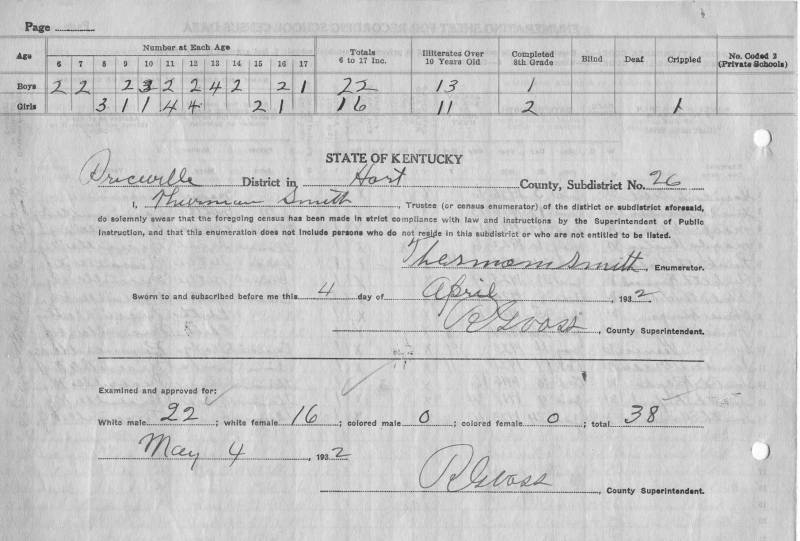 Page
Age Number at Each Age Totals 6 to 17 Inc. Illiterates Over 10 Years Old Completed 8th Grade Blind Deaf Crippled No. Coded 2 (Private Schools)
6 7 8 9 10 11 12 13 14 15 16 17
Boys 2 2 2 3 2 2 4 2 2 1 22 13 1
Girls 3 1 1 4 4 2 1 16 11 2 1
STATE OF KENTUCKY
Priceville District in Hart County, Subdistrict No. 26
I, Thurman Smith, Trustee (or census enumerator) of the district or subdistrict aforesaid,
do solemnly swear that the foregoing census has been made in strict compliance with law and instructions by the Superintendent of Public
Instruction, and that this enumeration does not include persons who do not reside in this subdistrict or who are not entitled to be listed.
Thermom Smith, Enumerator.
Sworn to and subscribed before me this 4 day of April, 1932
, County Superintendent.
Examined and approved for:
White male 22; white female 16; colored male 0; colored female 0; total 38
May 4, 1932
, County Superintendent.